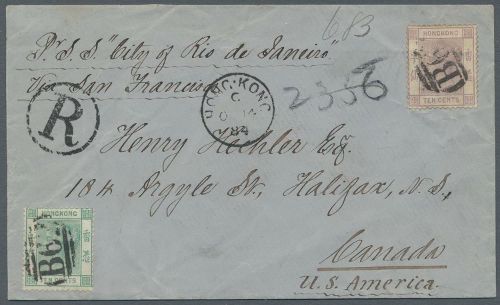 683
Pr. S. S. "City of Rio de Janeiro"
Via San Francisco
HONGKONG
TEN CENTS
R
HONG-KONG
C
84
2356
Henry Hechler Esq.
184 Argyle St., Halifax, N.S.,
Canada
U.S. America.
HONGKONG
TEN CENTS